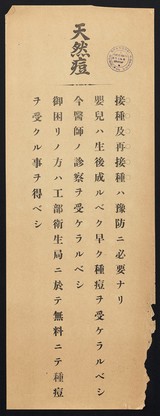 天然痘
接種及再接種ハ豫防ニ必要ナリ
嬰兒ハ生後成ルベク早ク種痘ヲ受ケラルベシ
今醫師ノ診察ヲ受ケラルベシ
御困リノ方ハ工部衛生局ニ於テ無料ニテ種痘
ヲ受クル事ヲ得ベシ